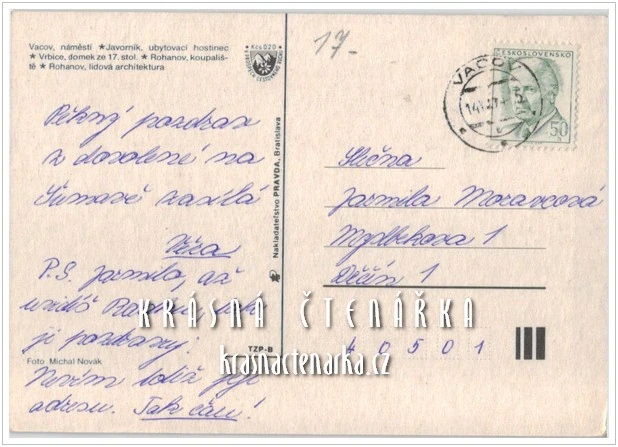 Vacov, náměstí ★Javorník, ubytovací hostinec
★ Vrbice, domek ze 17. stol. ★ Rohanov, koupališ-
tě ★ Rohanov, lidová architektura
Kčs 0,20
17-
ČESKOSLOVENSKO
VACOV
50
Pěkný pozdrav
z dovolené na
Šumavě zasílá
Věra
P.S. Jarmilo, až
uvidíš
ji pozdravuj.
Nevím totiž její
adresu. Tak čau!
Foto Michal Novák
TZP-B
Nakladatelstvo PRAVDA, Bratislava
Slečna
Jarmila Moravcová
Myslbekova 1
Děčín 1
40501
KRÁSNÁ ČTENÁŘKA
krasnactenarka.cz